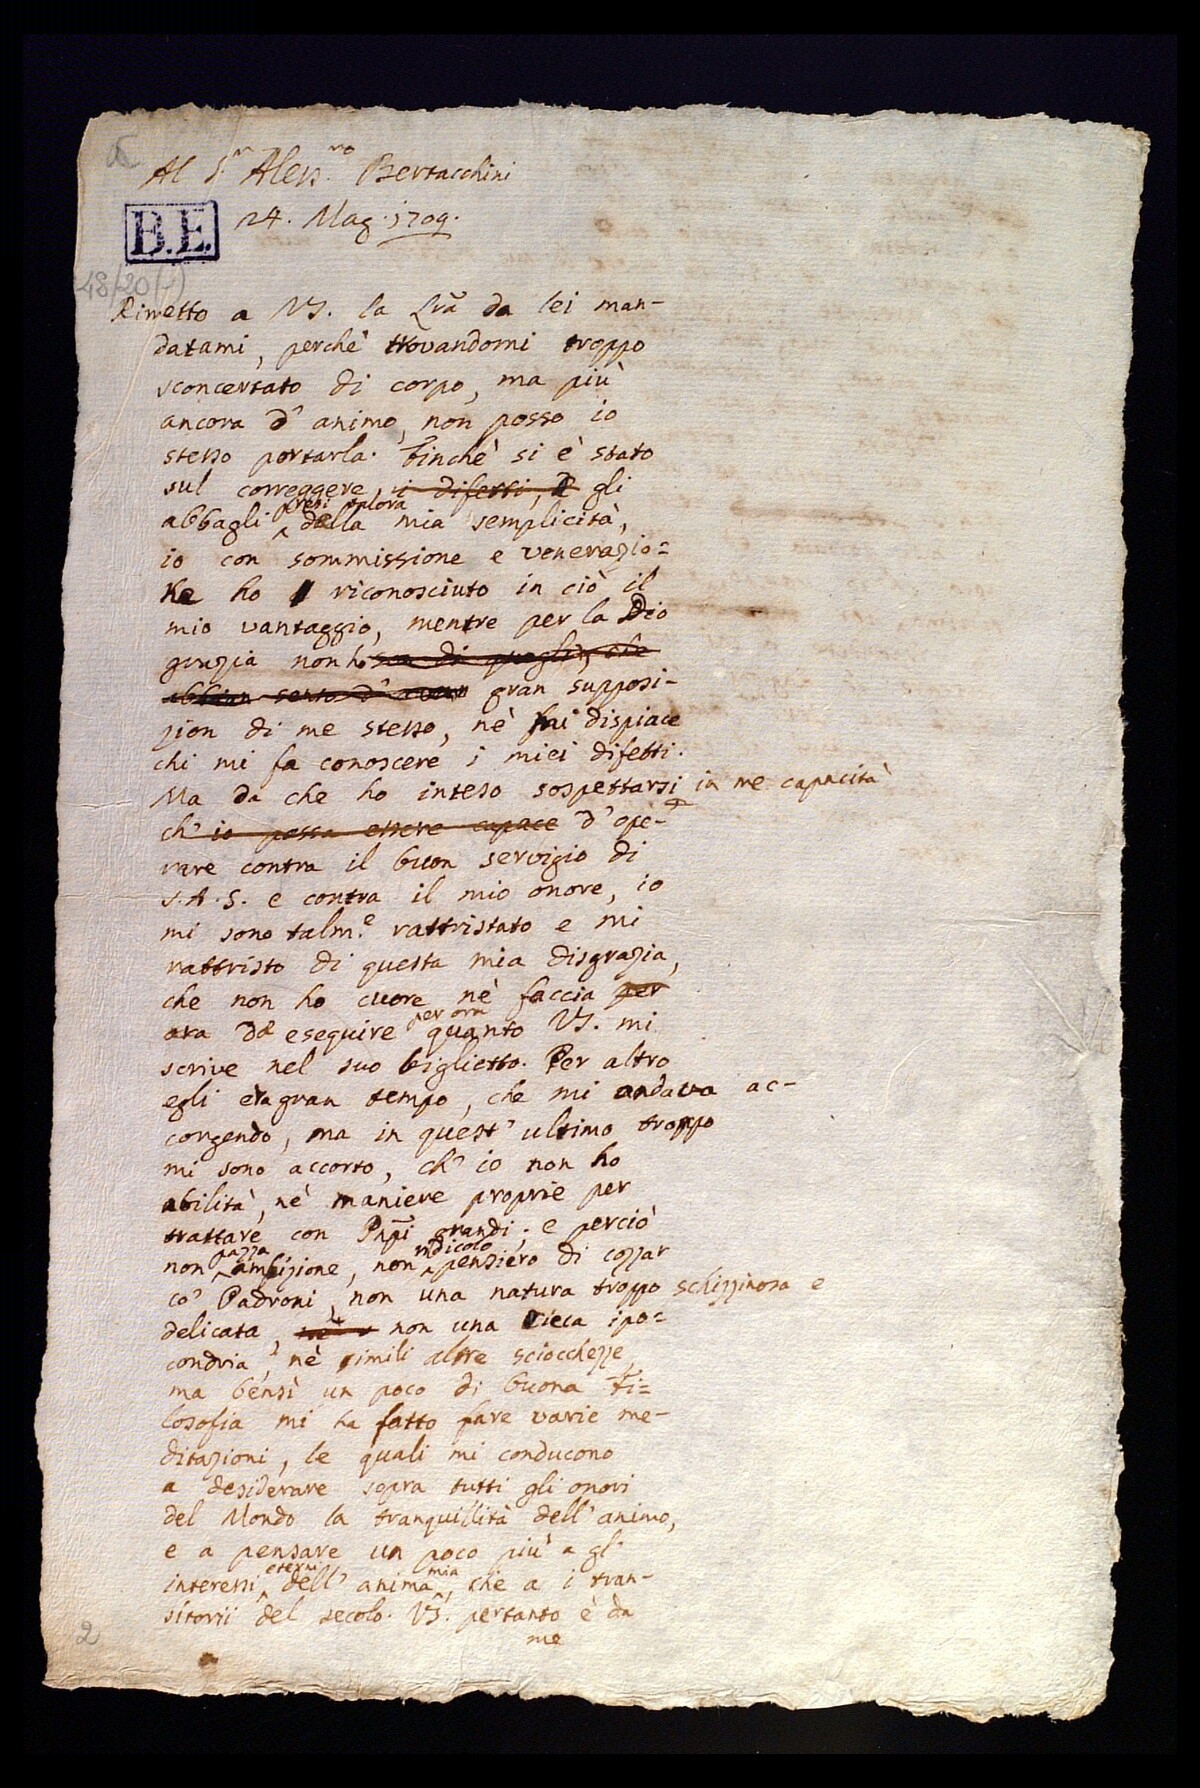 Al S.r Aless.ro Bertacchini
24. Mag. 1709.
B.E.
48/20(1)
Rimetto a VS. la Lr̃a da lei man-
datami, perchè trovandomi troppo
sconcertato di corpo, ma più
ancora d' animo, non posso io
stesso portarla. Finchè si è stato
sul correggere, i difetti, gli
presi talora
abbagli della mia semplicità,
io con sommissione e venerazio=
ne ho riconosciuto in ciò il
mio vantaggio, mentre per la Dio
grazia non ho son di quegli, che
abbian senso d' aver gran supposi-
zion di me stesso, nè mi dispiace
chi mi fa conoscere i miei difetti.
Ma da che ho inteso sospettarsi in me capacità
ch' io possa essere capace d' ope-
rare contra il buon servigio di
S.A.S. e contra il mio onore, io
mi sono talm.e rattristato e mi
rattristo di questa mia disgrazia,
che non ho cuore, nè faccia per
per ora
ora da eseguire quanto VS. mi
scrive nel suo biglietto. Per altro
egli era gran tempo, che mi andava ac-
corgendo, ma in quest' ultimo troppo
mi sono accorto, ch' io non ho
abilità, nè maniere proprie per
trattare con Pn̄pi grandi; e perciò
pazza ridicolo
non ambizione, non pensiero di cozzar
co' Padroni, non una natura troppo schizzinosa e
delicata, nè non una cieca ipo=
condria, nè simili altre sciocchezze,
ma bensì un poco di buona Fi=
losofia mi ha fatto fare varie me-
ditazioni, le quali mi conducono
a desiderare sopra tutti gli onori
del Mondo la tranquillità dell' animo,
e a pensare un poco più a gl'
eterni mia
interessi dell' anima, che a i tran-
sitorii del secolo. VS. pertanto è da
me
2